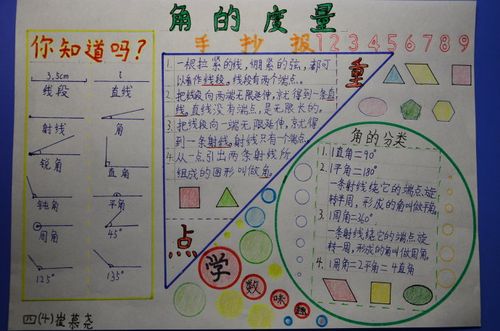 角的度量
手抄报123456789
你知道吗?
3.3cm l
线段 直线
射线 角
锐角 直角
钝角 平角
周角 45°
125° 135°
四(4)崔慕尧
1. 一根拉紧的线,绷紧的弦,都可
以看作线段。线段有两个端点。
2. 把线段向两端无限延伸,就得到一条直
线。直线没有端点,是无限长的。
3. 把线段向一端无限延伸,就得
到一条射线。射线只有一个端点。
4. 从一点引出两条射线所
组成的图形叫做角。
重
点
学
数
味
趣
角的分类
1. 1直角=90°
2. 1平角=180°
一条射线绕它的端点旋
转半周,形成的角叫做平角。
3. 1周角=360°
一条射线绕它的端点旋
转一周,形成的角叫做周角。
4. 1周角=2平角=4直角